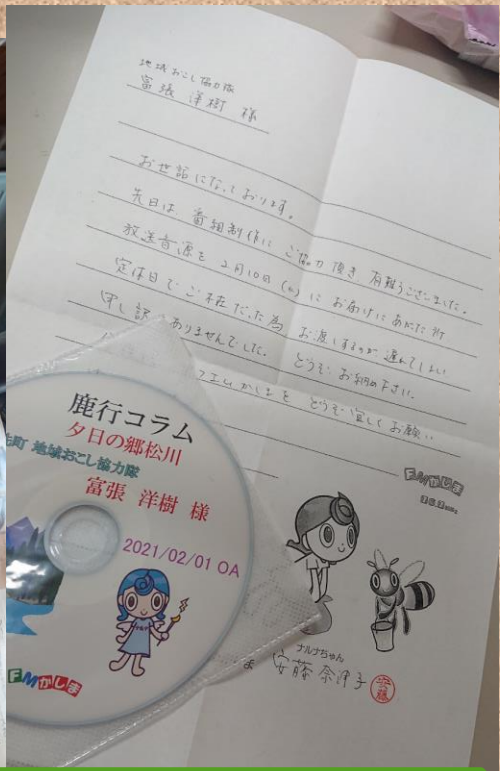 地域おこし協力隊
富張 洋樹 様
お世話になっております。
先日は、番組制作に ご協力頂き 有難うございました。
放送音源を 2月10日(水)に お届けに あがった所
定休日で ご不在だった為 お渡しするのが 遅れてしまい
申し訳 ありませんでした。 どうぞ お納め下さい。
エフエムかしまを どうぞ 宜しく お願い
FMかしま
ナルナちゃん
安藤 奈津子
安藤
鹿行コラム
夕日の郷松川
町 地域おこし協力隊
富張 洋樹 様
2021/02/01 OA
FMかしま